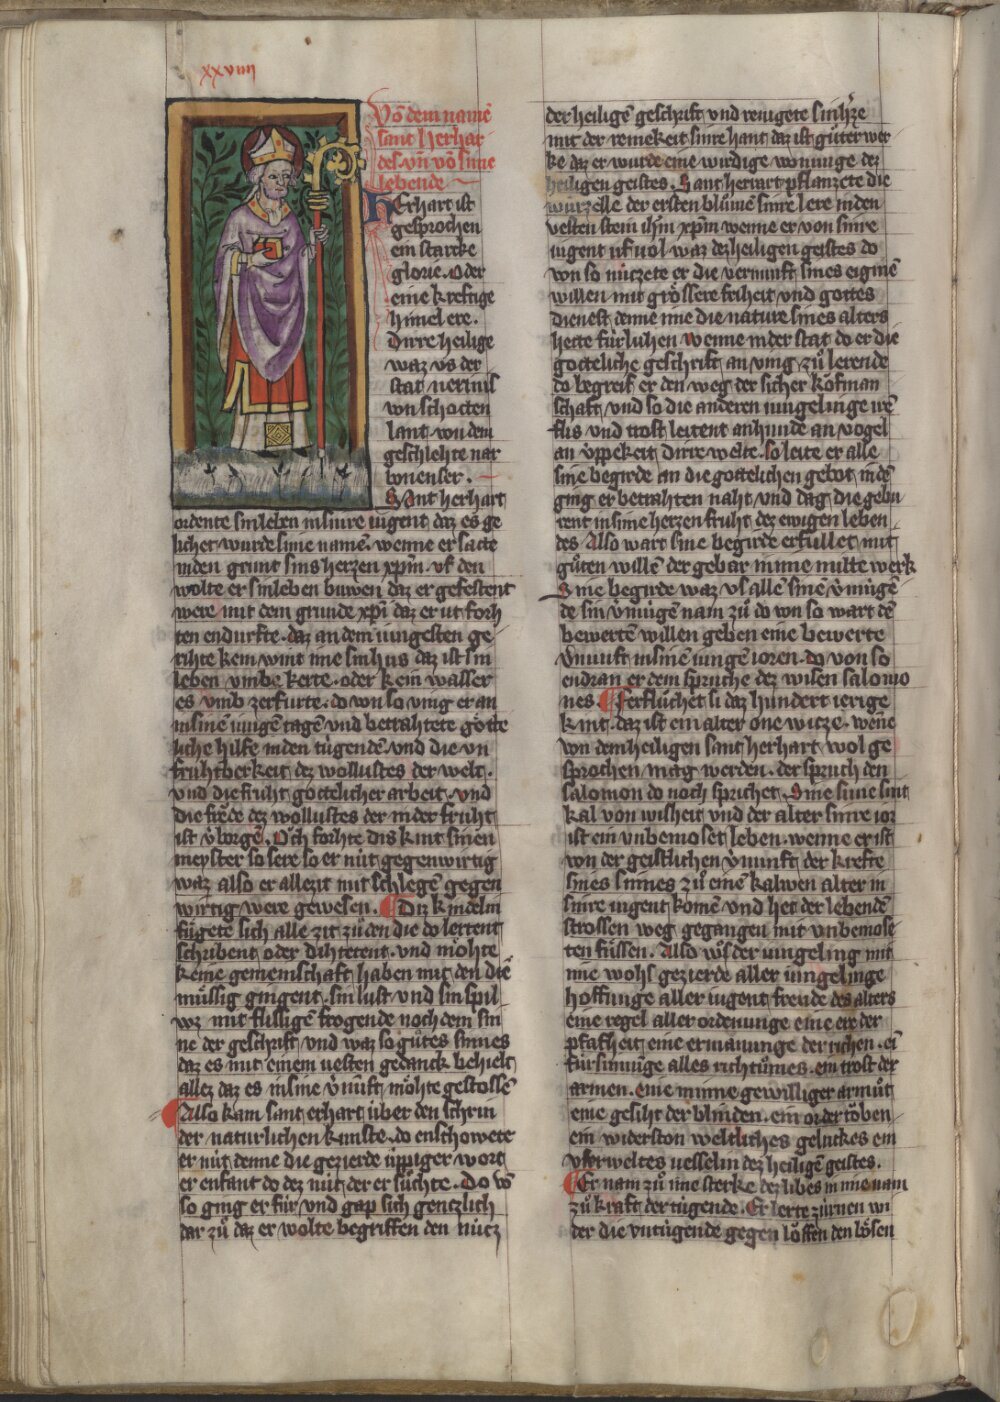 xxviiii
Võ dem namẽ
sant herhar
des. vñ võ sime
lebende
HErhart ist
gesprochen
ein starcke
glorie. oder
eine kreftige
himel ere.
Dirre heilige
waz vs der
stat
von schotten
lant. von dem
geschlehte nar
bonenser.
Sant herhart
ordente sin leben in sinre iugent daz es ge
lichet wurde sime namẽ. wenne er satte
in den grunt sins herzen xp̃m. vf den
wolte er sin leben buwen daz er gefestent
were mit dem grunde xpi daz er ut forh
ten endurfte. daz an dem iungesten ge
rihte kein wint ime sin hus daz ist sin
leben vmbe kerte. oder kein wasser
es vmb zerfurte. do von so ving er an
in sinẽ iungẽ tagẽ vnd betrahtete gotte
liche hilfe in den tugendẽ vnd die vn
fruhtberkeit dez wollustes der welt.
vnd die fruht gottelicher arbeit. vnd
die frẽde dez wollustes der in der fruht
ist v̾borgẽ. Och forhte dis kint sinen
meyster so sere so er nut gegenwirtig
waz also er allezit mit schlegẽ gegen
wirtig were gewesen. Diz kindelin
fugete sich alle zit zu den die do lertent
schribent oder dihtetent. vnd mohte
keine gemeinschaft haben mit den die
mussig gingent. sin lust vnd sin spil
wz mit flissigẽ frogende noch dem sin
ne der geschrift vnd waz so gutes sinnes
daz es mit einem vesten gedanck behielt
allez daz es in sine v̾nunft mohte gestossẽ
Also kam sant erhart uber den schrin
der naturlichen kunste. do enschowete
er nut denne die gezierde uppiger wort
er enfant do dez nut der er suchte. do võ
so ging er fur vnd gap sich gentzlich
dar zu daz er wolte begriffen den nucz
der heiligẽ geschrift vnd reinigete sin h̾ze
mit der reinekeit sinre hant daz ist guter wer
ke daz er wurde eine wirdige wonunge dez
heiligen geistes. Sant herhart pflanzete die
wurzelle der ersten blumẽ sinre lere in den
vesten stein ih̃m xp̃m wenne er von sinre
iugent uf vol waz dez heiligen geistes do
von so nuczete er die vernunft sines eiginẽ
willen mit grossere friheit vnd gottes
dienest denne ime die nature sines alters
hette furluhen wenne in der stat do er die
gotteliche geschrift an ving zu lerende
do begreif er den weg der sicher kofman
schaft vnd so die anderen iungelinge irẽ
flis vnd trost leitent an hunde an vogel
an vppekeit dirre welte. so leite er alle
sine begirde an die gottelichen gebot in dẽ
ging er betrahten naht vnd dag die gebu
rent in sime herzen fruht dez ewigen leben
des Also wart sine begirde erfullet mit
gutem willẽ der gebar in ime milte werk
Sine begirde waz vs allẽ sinẽ v̾mugẽ
de sin v̾mugẽ nam zu do von so wart dẽ
bewertẽ willen geben eine bewerte
v̾nunft in sinẽ iungẽ ioren. do von so
endran er dem spruche dez wisen salomo
nes. Ferfluchet si daz hundert ierige
kint. daz ist ein alter one witze. wẽne
von dem heiligen sant herhart wol ge
sprochen mag werden. der spruch den
salomon do noch sprichet. Sine sinne sint
kal von wisheit vnd der alter sinre ior
ist ein vnbemoset leben. wenne er ist
von der geistlichen v̾nunft der krefte
sines sinnes zu einẽ kalwen alter in
sinre iugent komẽ vnd het der lebendẽ
strossen weg gegangen mit vnbemose
ten fussen. Also w̾s der iungeling mit
ime wohs gezierde aller iungelinge
hoffunge aller iugent freude des alters
eine regel aller ordenunge eine ere der
pfafheit eine ermanunge der richen. ei
fursimuge alles richtumes. ein trost der
armen. eine minne gewilliger armut
eine gesiht der blinden. ein order toben
ein widerston weltliches geluckes ein
vserweltes vesselin dez heiligẽ geistes.
Er nam zu ime sterke dez libes in ime nam
zu kraft der tugende. Er lerte zurnen wi
der die vntugende gegen loffen den bosen